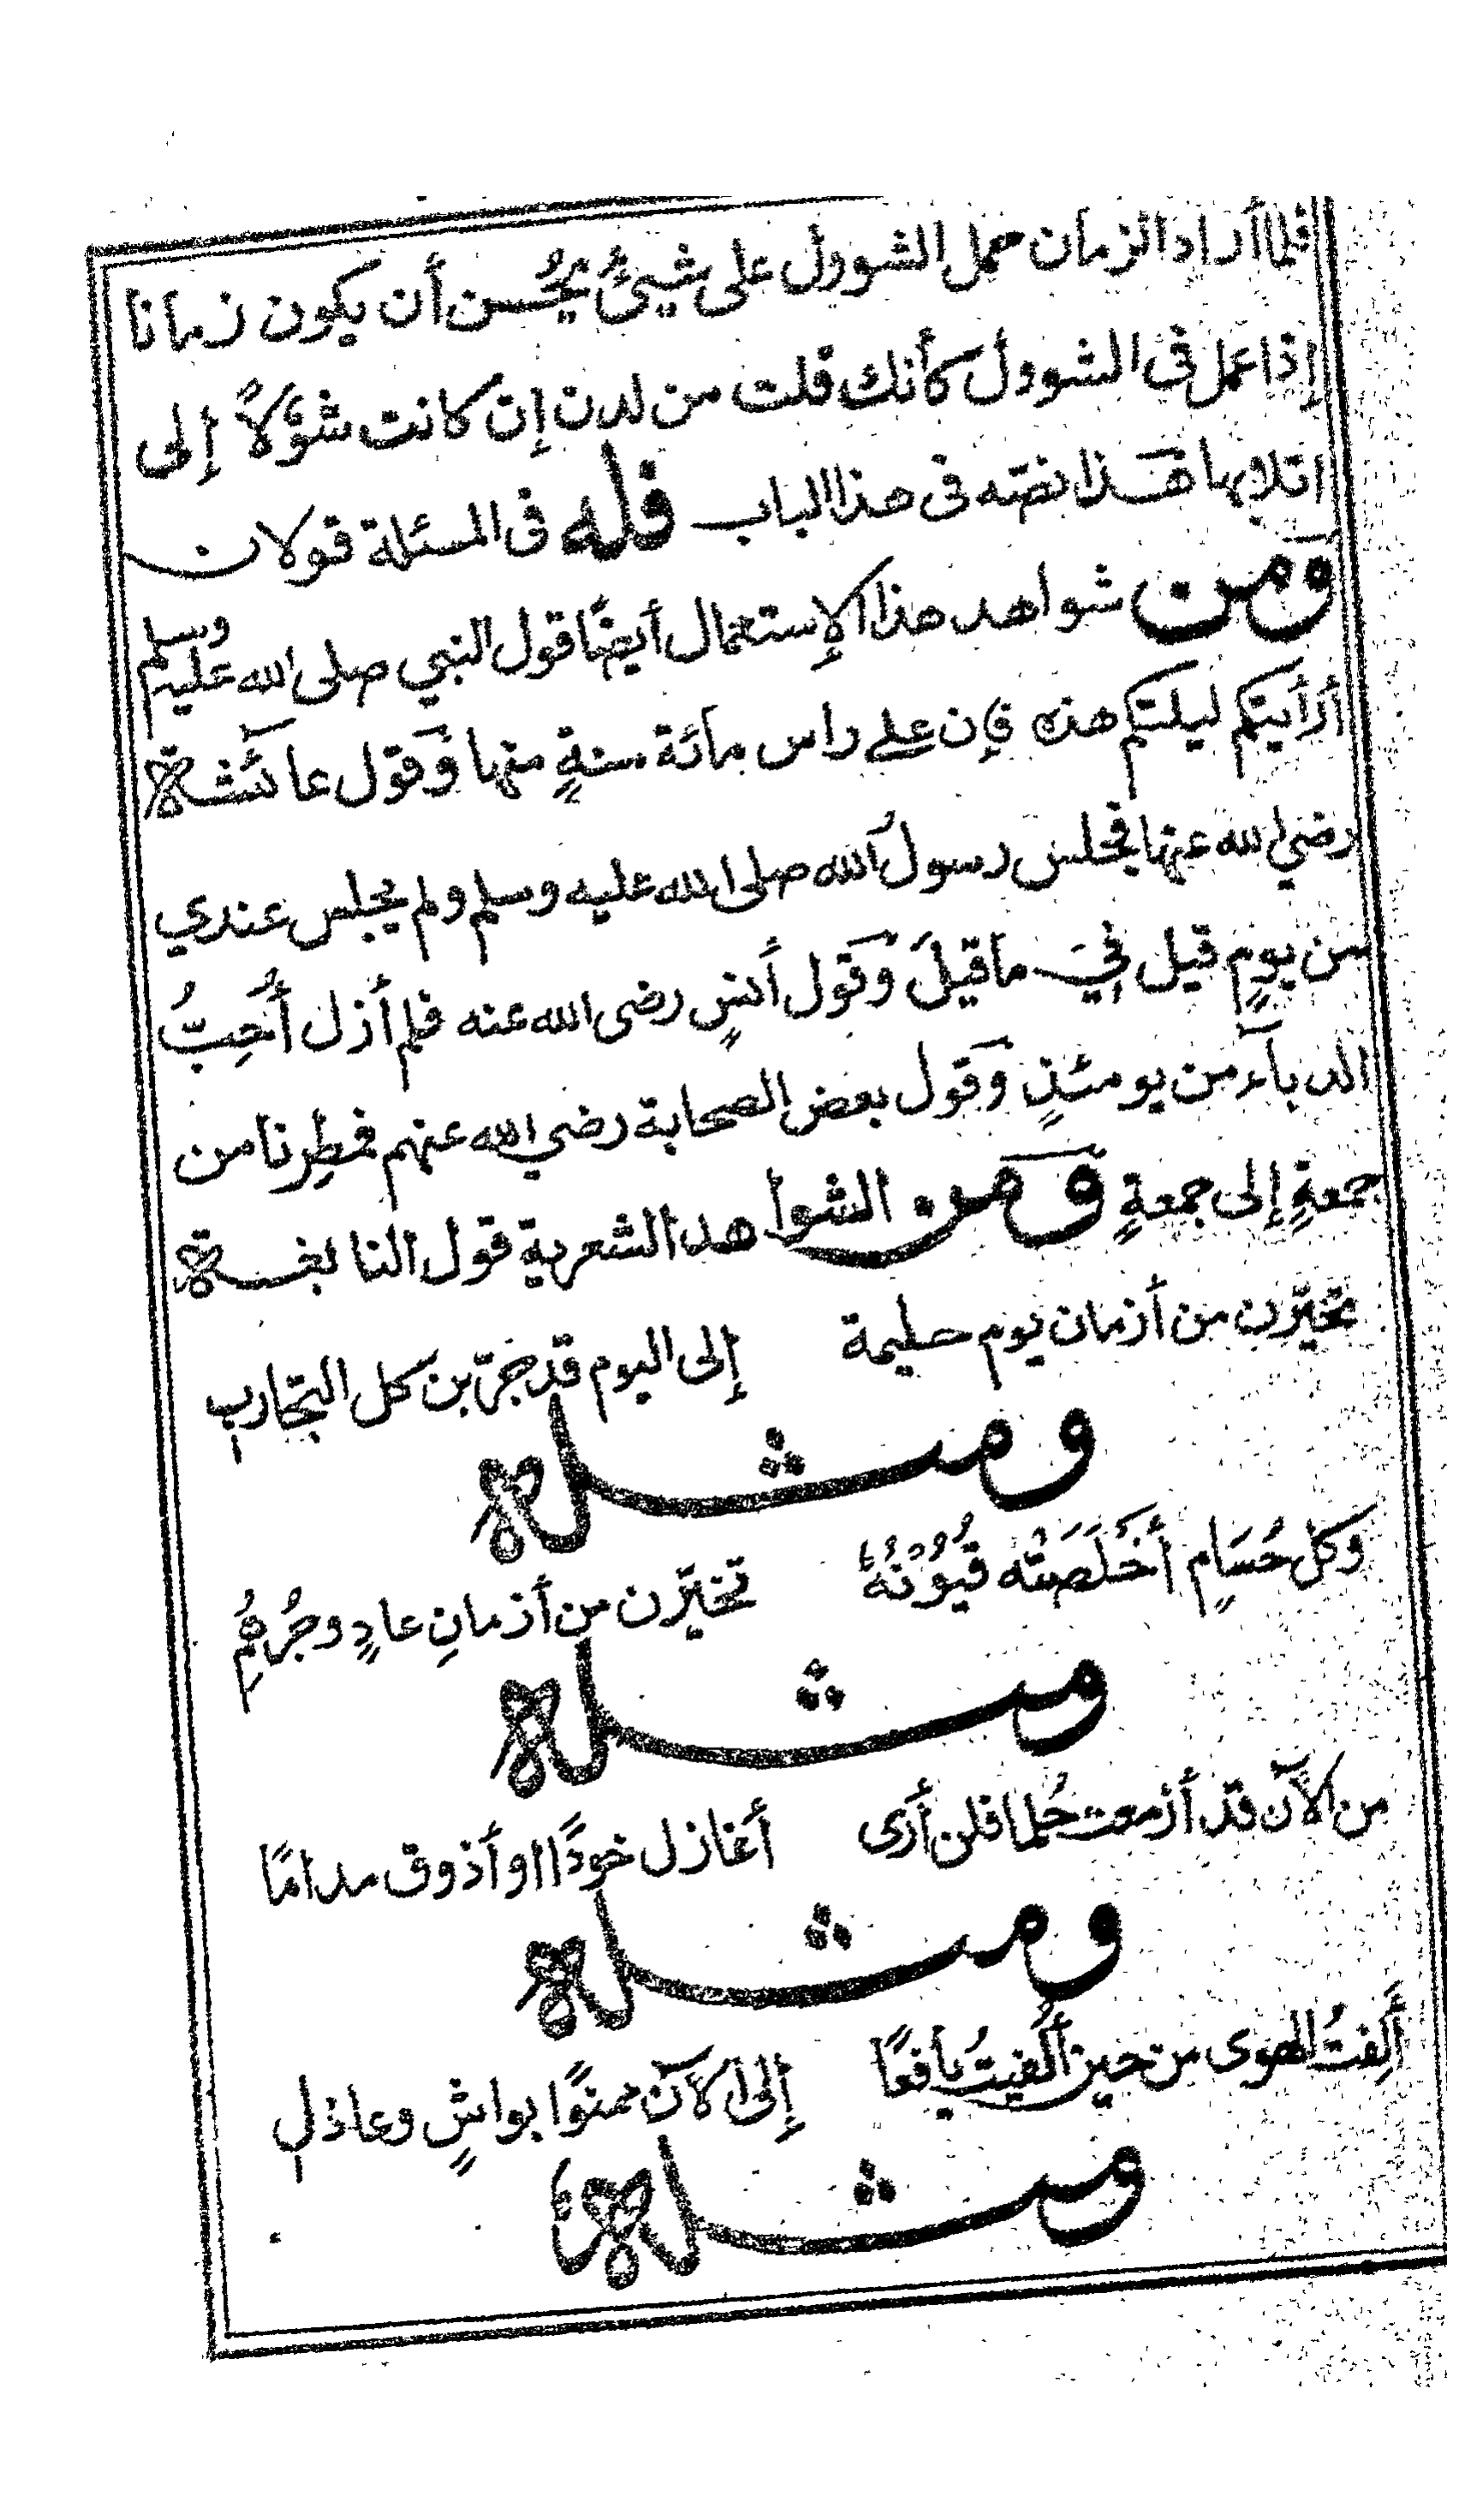 فلما أراد الزمان حمل الشوول على شيئ يَحُسن أن يكون زمانا
إذا عمل في الشوول كأنك قلت من لدن إن كانت شؤلاً إلى
اتلابها هَذا نصّه فى هذا الباب فله فى المسئلة قولان
وَمن شواهد هذا الإستعمال أيضًا قول النبي صلى الله عليه وسلم
أرأيتكم ليلتكم هذه فإن على راس مائة سنةٍ منها وَقول عائشة
رضي الله عنها فجلس رسولُ الله صلى الله عليه وسلم ولم يجلس عندي
من يومٍ قيل فِيَّ ما قيلَ وَقول أنسٍ رضى الله عنه فلم أزل أُحِبُّ
الدبآء من يومئذٍ وَقول بعض الصحابة رضي الله عنهم فمُطِرنا من
جمعةٍ إلى جمعةٍ وَمن الشواهد الشعرية قول النابغة
تخيّرن من أزمان يوم حليمة إلى اليوم قد جرّبن كل التجارب
ومثله
وكل حُسَامٍ أَخْلَصَتْه قُيُوْنُهُ تخيّرن من أزمانِ عادٍ وجُرْهُمِ
ومثله
من الآن قد أزمعت حُلما فلن أرى أغازل خودًا او أذوق مدامًا
ومثله
أَلِفتُ الهوى من حين أُلفيتُ يافعًا إلى الآن ممنوًا بواشٍ وعاذلِ
ومثلهُ